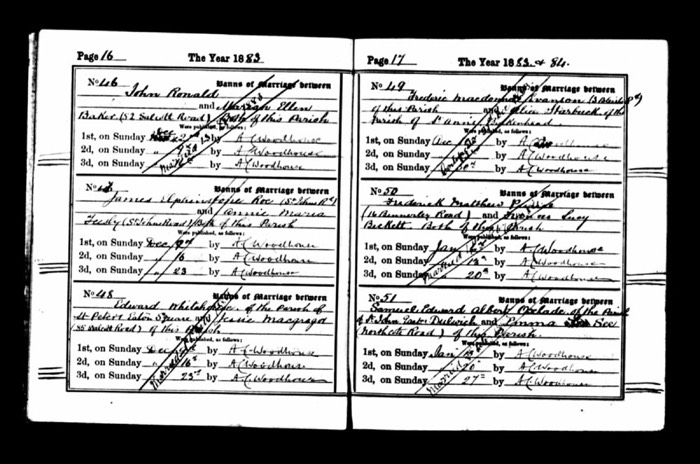 Page 16 The Year 1883
No 46 Banns of Marriage between
John Ronald
and Ellen
Baker (52 Road) Both of this Parish
Were published, as follows:
1st, on Sunday 2nd by A C Woodhouse
2d, on Sunday by A C Woodhouse
3d, on Sunday by A C Woodhouse
Banns of Marriage between
James Roe (St Johns Rd)
and Annie Maria
(St Johns Road) Both of this Parish
Were published, as follows:
1st, on Sunday Dec by A C Woodhouse
2d, on Sunday " 16 by A C Woodhouse
3d, on Sunday " 23 by A C Woodhouse
No 48 Banns of Marriage between
Edward of the Parish of
St Peters Eaton Square and Jessie Macgregor
Road) of this Parish
Were published, as follows:
1st, on Sunday Dec by A C Woodhouse
2d, on Sunday 16th by A C Woodhouse
3d, on Sunday 23rd by A C Woodhouse
Page 17 The Year 1883 & 84.
No 49 Banns of Marriage between
Frederic Macdonald
of this Parish and Alice of the
Parish of St Annes Birkenhead
Were published, as follows:
1st, on Sunday by A C Woodhouse
2d, on Sunday by A C Woodhouse
3d, on Sunday 30th by A C Woodhouse
No 50 Banns of Marriage between
Frederick Matthew
Road) and Frances Lucy
Beckett Both of this Parish
Were published, as follows:
1st, on Sunday Jan by A C Woodhouse
2d, on Sunday Married 13th by A C Woodhouse
3d, on Sunday 20th by A C Woodhouse
No 51 Banns of Marriage between
Samuel Edward Albert of the Parish
of St John East Dulwich and Emma Roe
(Northcote Road) of this Parish.
Were published, as follows:
1st, on Sunday Jan 13th by A C Woodhouse
2d, on Sunday Married 20th by A C Woodhouse
3d, on Sunday 27th by A C Woodhouse